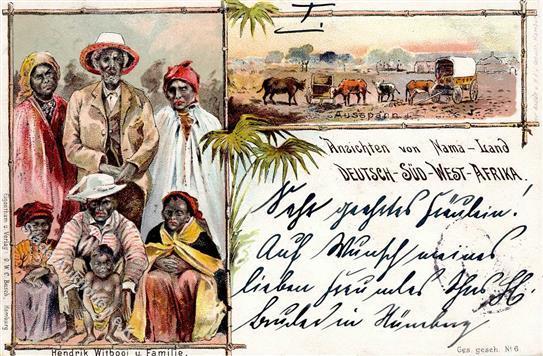 I.
Ausspann.
Ansichten von Nama-Land
DEUTSCH-SÜD-WEST-AFRIKA.
Sehr geehrtes Fräulein!
Auf Wunsch meines
lieben Freundes Ihres H.
Bruder in Nürnberg
Hendrik Witbooi u. Familie.
Ges. gesch. No 6.
Eigenthum u. Verlag
Hamburg